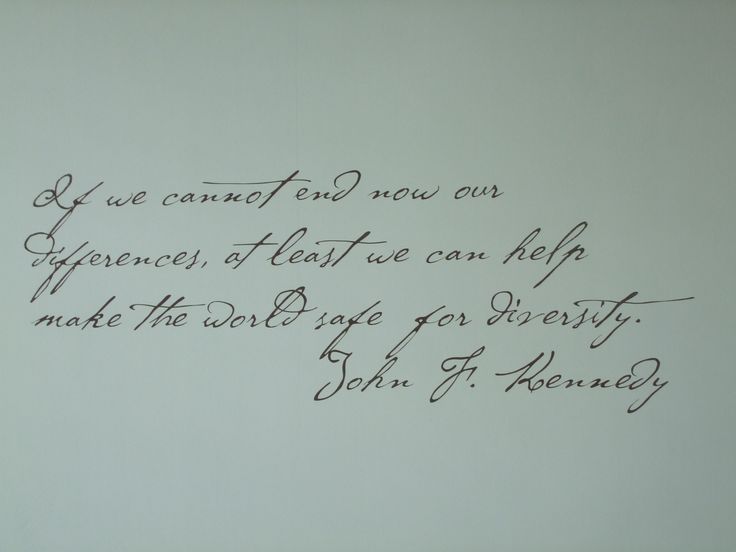 If we cannot end now our
differences, at least we can help
make the world safe for diversity.
John F. Kennedy